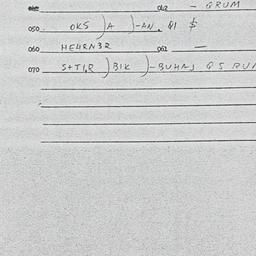 062 - GRUM
050 OKS )A )-AN. Q1 $
060 HE4RN3R 061 —
070 S+TI,R )BIK )-BUHAJ Q5 RU